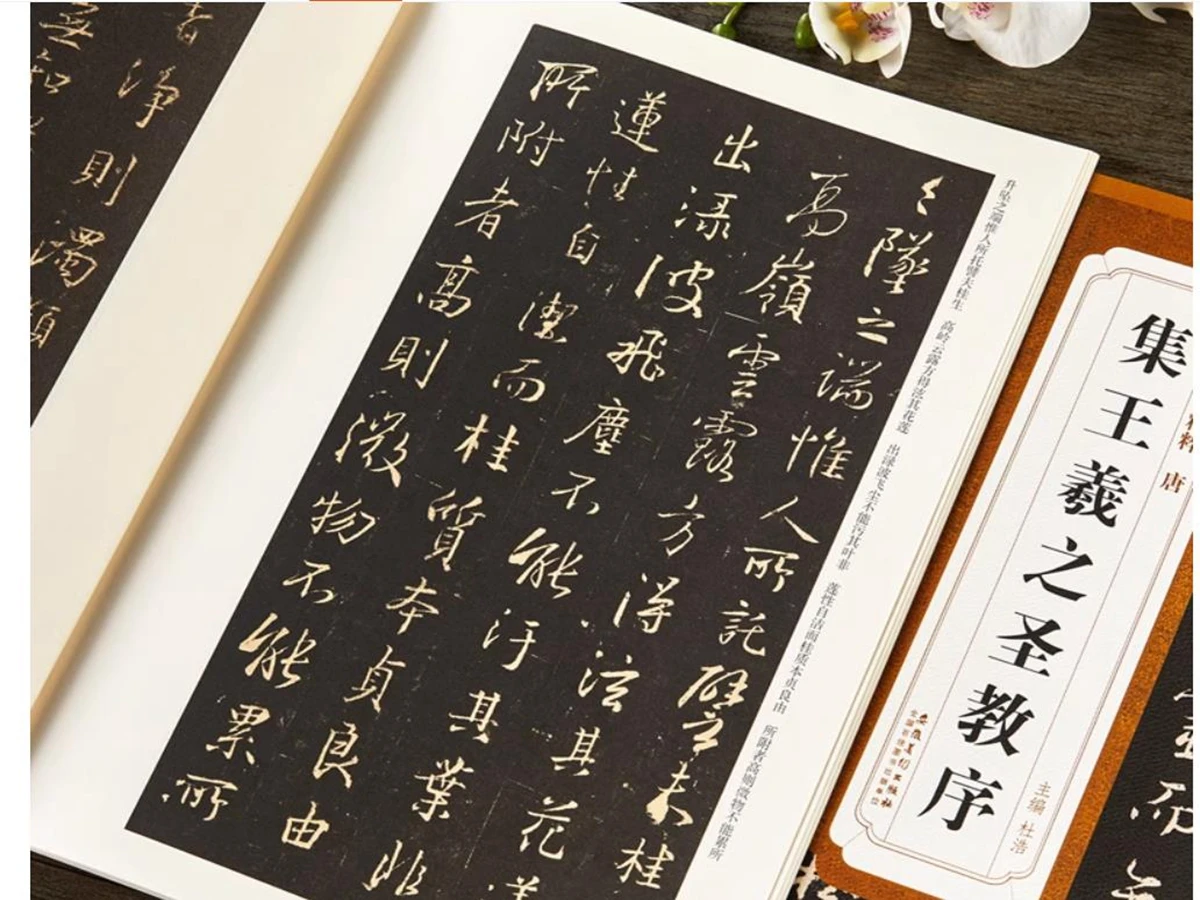 升坠之端惟人所托譬夫桂生 高岭云露方得泫其花莲 出渌波飞尘不能污其叶非 莲性自洁而桂质本贞良由 所附者高则微物不能累所
〻墜之端惟人所託譬夫桂
高嶺雲露方得泫其花
出渌波飛塵不能汙其葉非
蓮性自潔而桂質本貞良由
所附者高則微物不能累所
者淨則濁類
無知
唐
集王羲之圣教序
主编 杜浩
安徽美术出版社
全国百佳图书出版单位